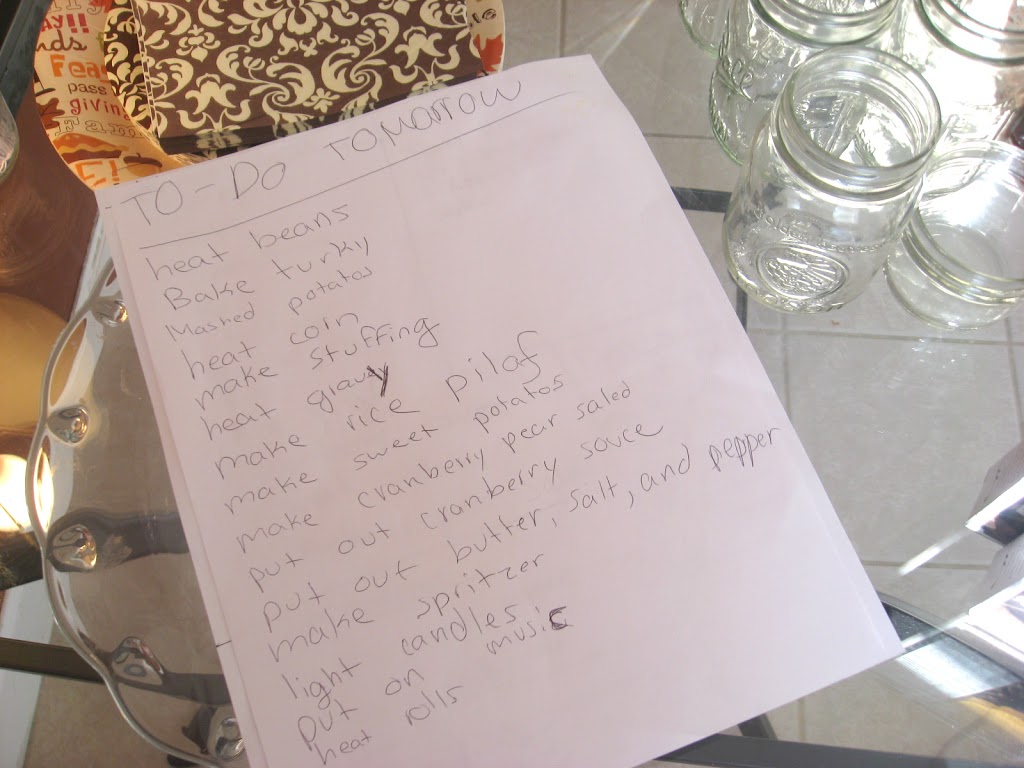 ds
Feas
pass
givin
Fam
TO-DO TOMORROW
heat beans
Bake turky
Mashed potatos
heat corn
make stuffing
heat gravy
make rice pilaf
make sweet potatos
make cranberry pear saled
put out cranberry souce
put out butter, salt, and pepper
make spritzer
light candles
put on music
heat rolls